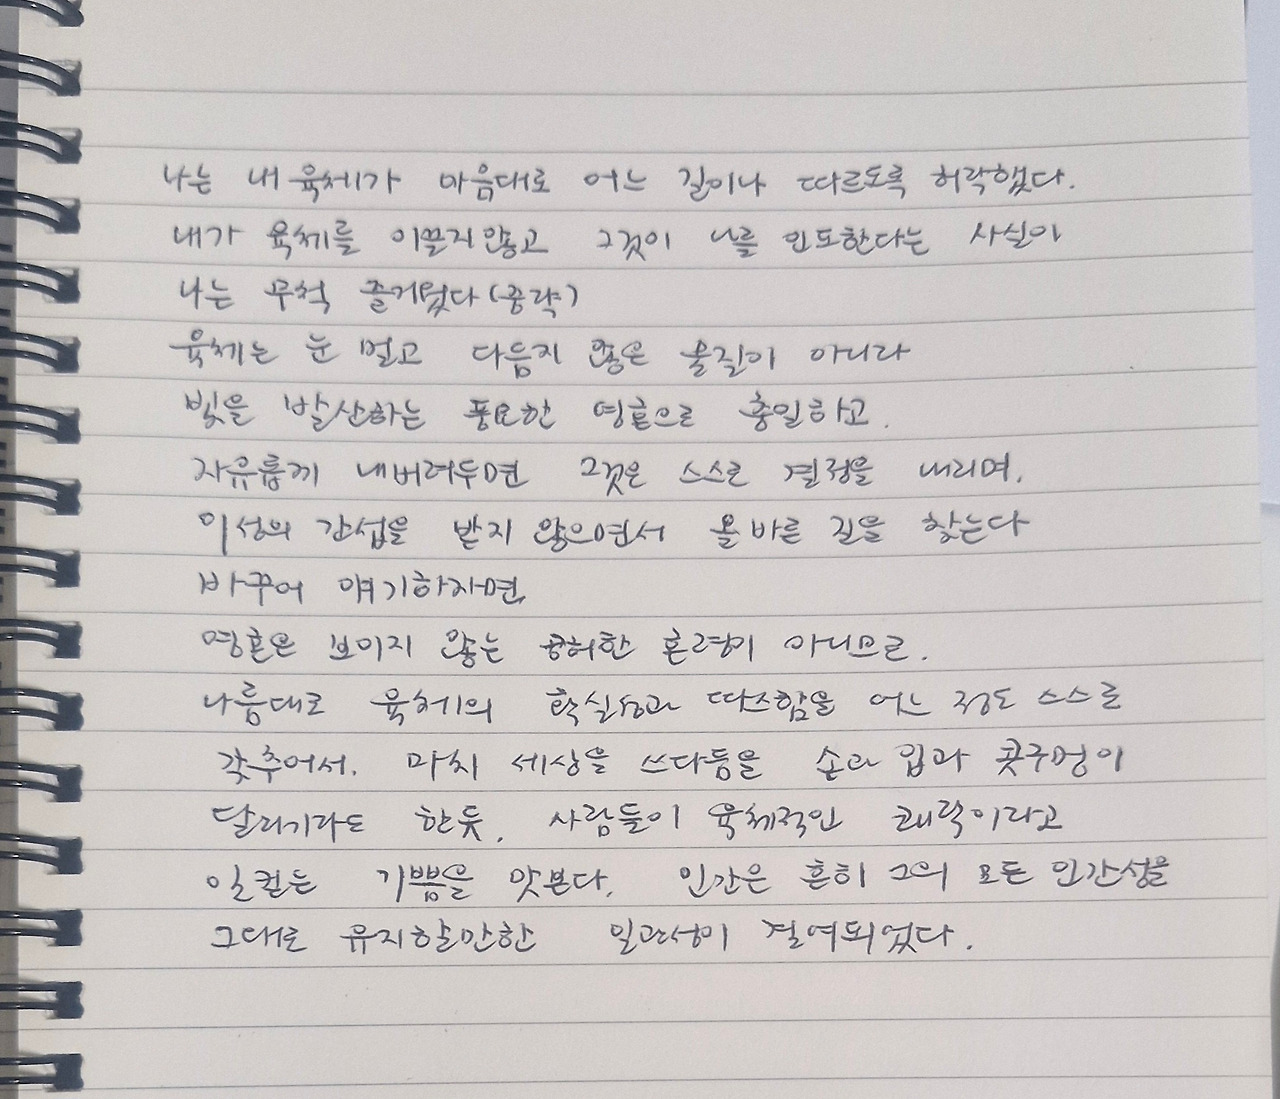 나는 내 육체가 마음대로 어느 길이나 따르도록 허락했다.
내가 육체를 이끌지 않고 그것이 나를 인도한다는 사실이
나는 무척 즐거웠다(중략)
육체는 눈 멀고 다듬지 않은 물질이 아니라
빛을 발산하는 풍요한 영혼으로 충일하고.
자유롭게 내버려두면 그것은 스스로 결정을 내리며,
이성의 간섭을 받지 않으면서 올바른 길을 찾는다
바꾸어 얘기하자면
영혼은 보이지 않는 공허한 혼령이 아니므로.
나름대로 육체의 확실성과 따스함을 어느 정도 스스로
갖추어서. 마치 세상을 쓰다듬을 손과 입과 콧구멍이
달리기라도 한듯, 사람들이 육체적인 쾌락이라고
일컫는 기쁨을 맛본다. 인간은 흔히 그의 모든 인간성을
그대로 유지할만한 일관성이 결여되었다.